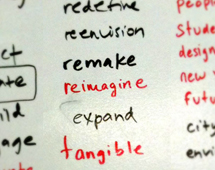 redefine
reenvision
remake
reimagine
expand
tangible
people
stude
design
new
futu
city
envi